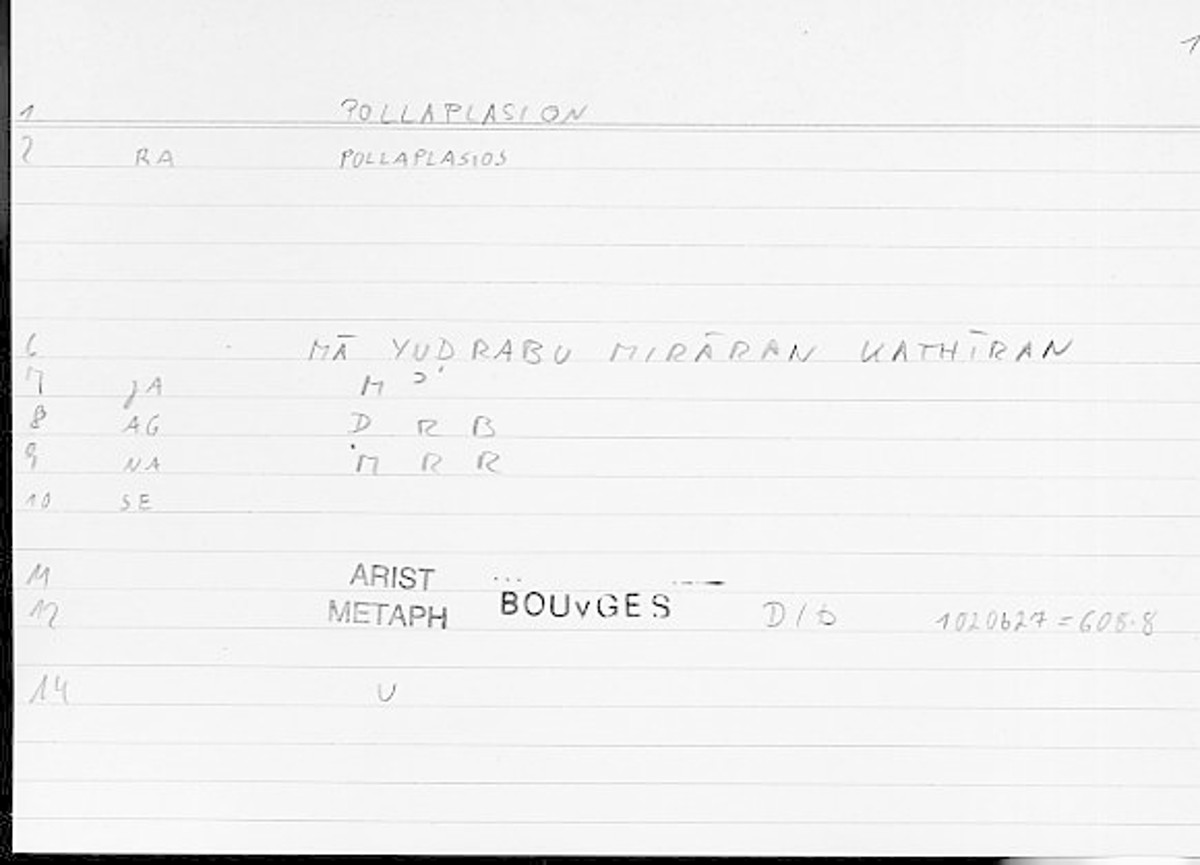 1
1 POLLAPLASION
2 RA POLLAPLASIOS
6 MĀ YUḌRABU MIRĀRAN KATHĪRAN
7 JA M
8 AG Ḍ R B
9 NA M R R
10 SE
11 ARIST
12 METAPH BOUvGES D/D 1020b27=608.8
14 U